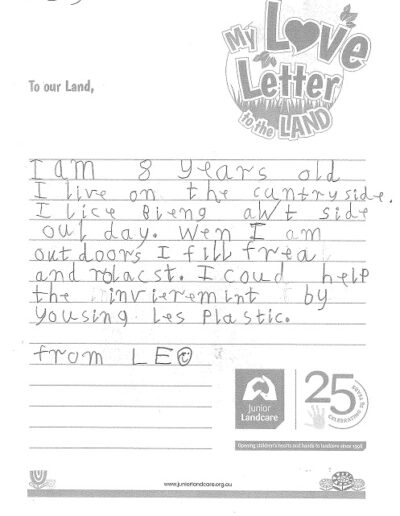 My Love
Letter
to the LAND
To our Land,
I am 8 years old
I live on the cuntryside.
I lice Bieng awt side
oul day. Wen I am
outdoors I fill frea
and rolacst. I coud help
the invieremint by
yousing les plastic.
from LEO
Junior
Landcare
25 YEARS
CELEBRATING
Opening children's hearts and hands to landcare since 1998
www.juniorlandcare.org.au